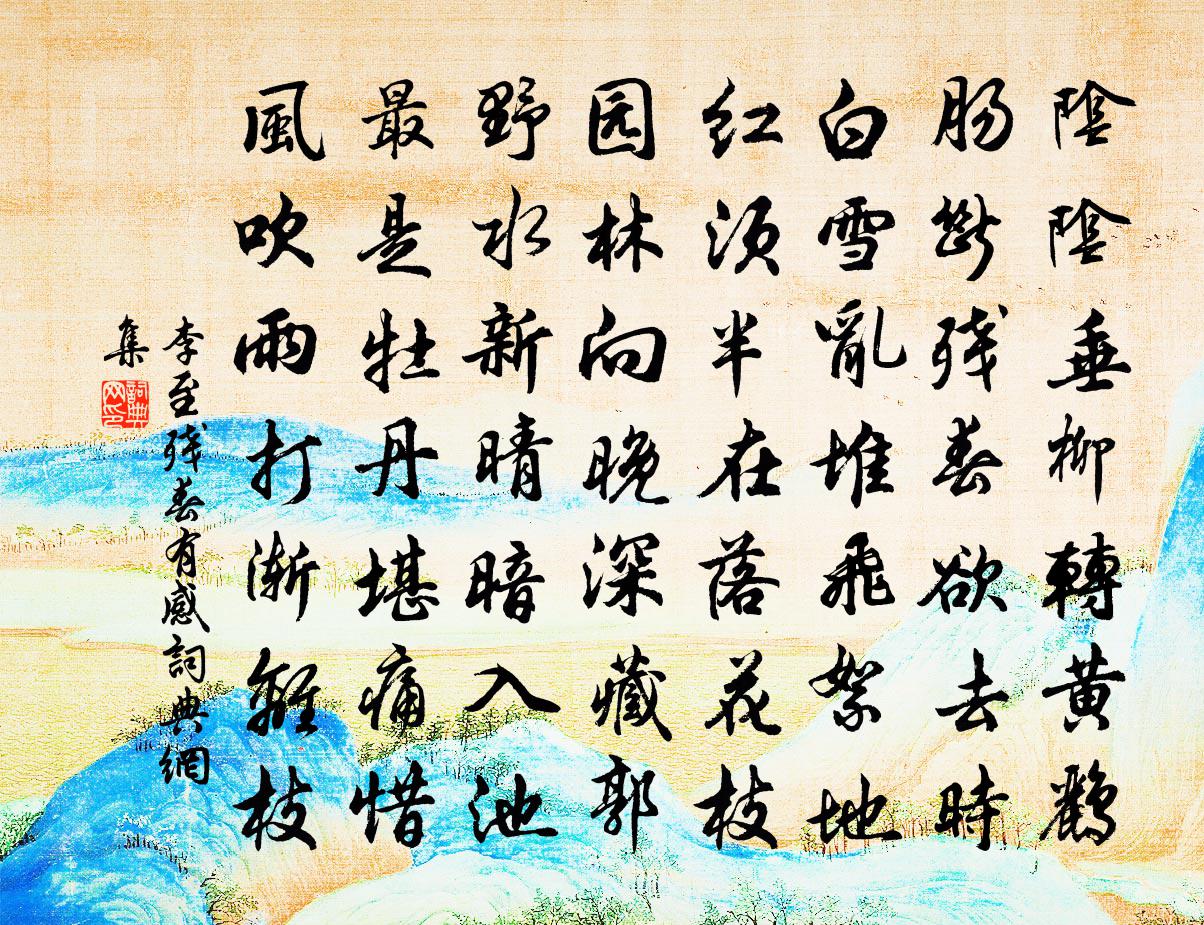 陰陰垂柳轉黄鸝
肠斷残春欲去時
白雪亂堆飛絮地
红须半在落花枝
园林向晚深藏郭
野水新晴暗入池
最是牡丹堪痛惜
風吹雨打渐離枝
李至残春有感詞典網
集
詞典網印